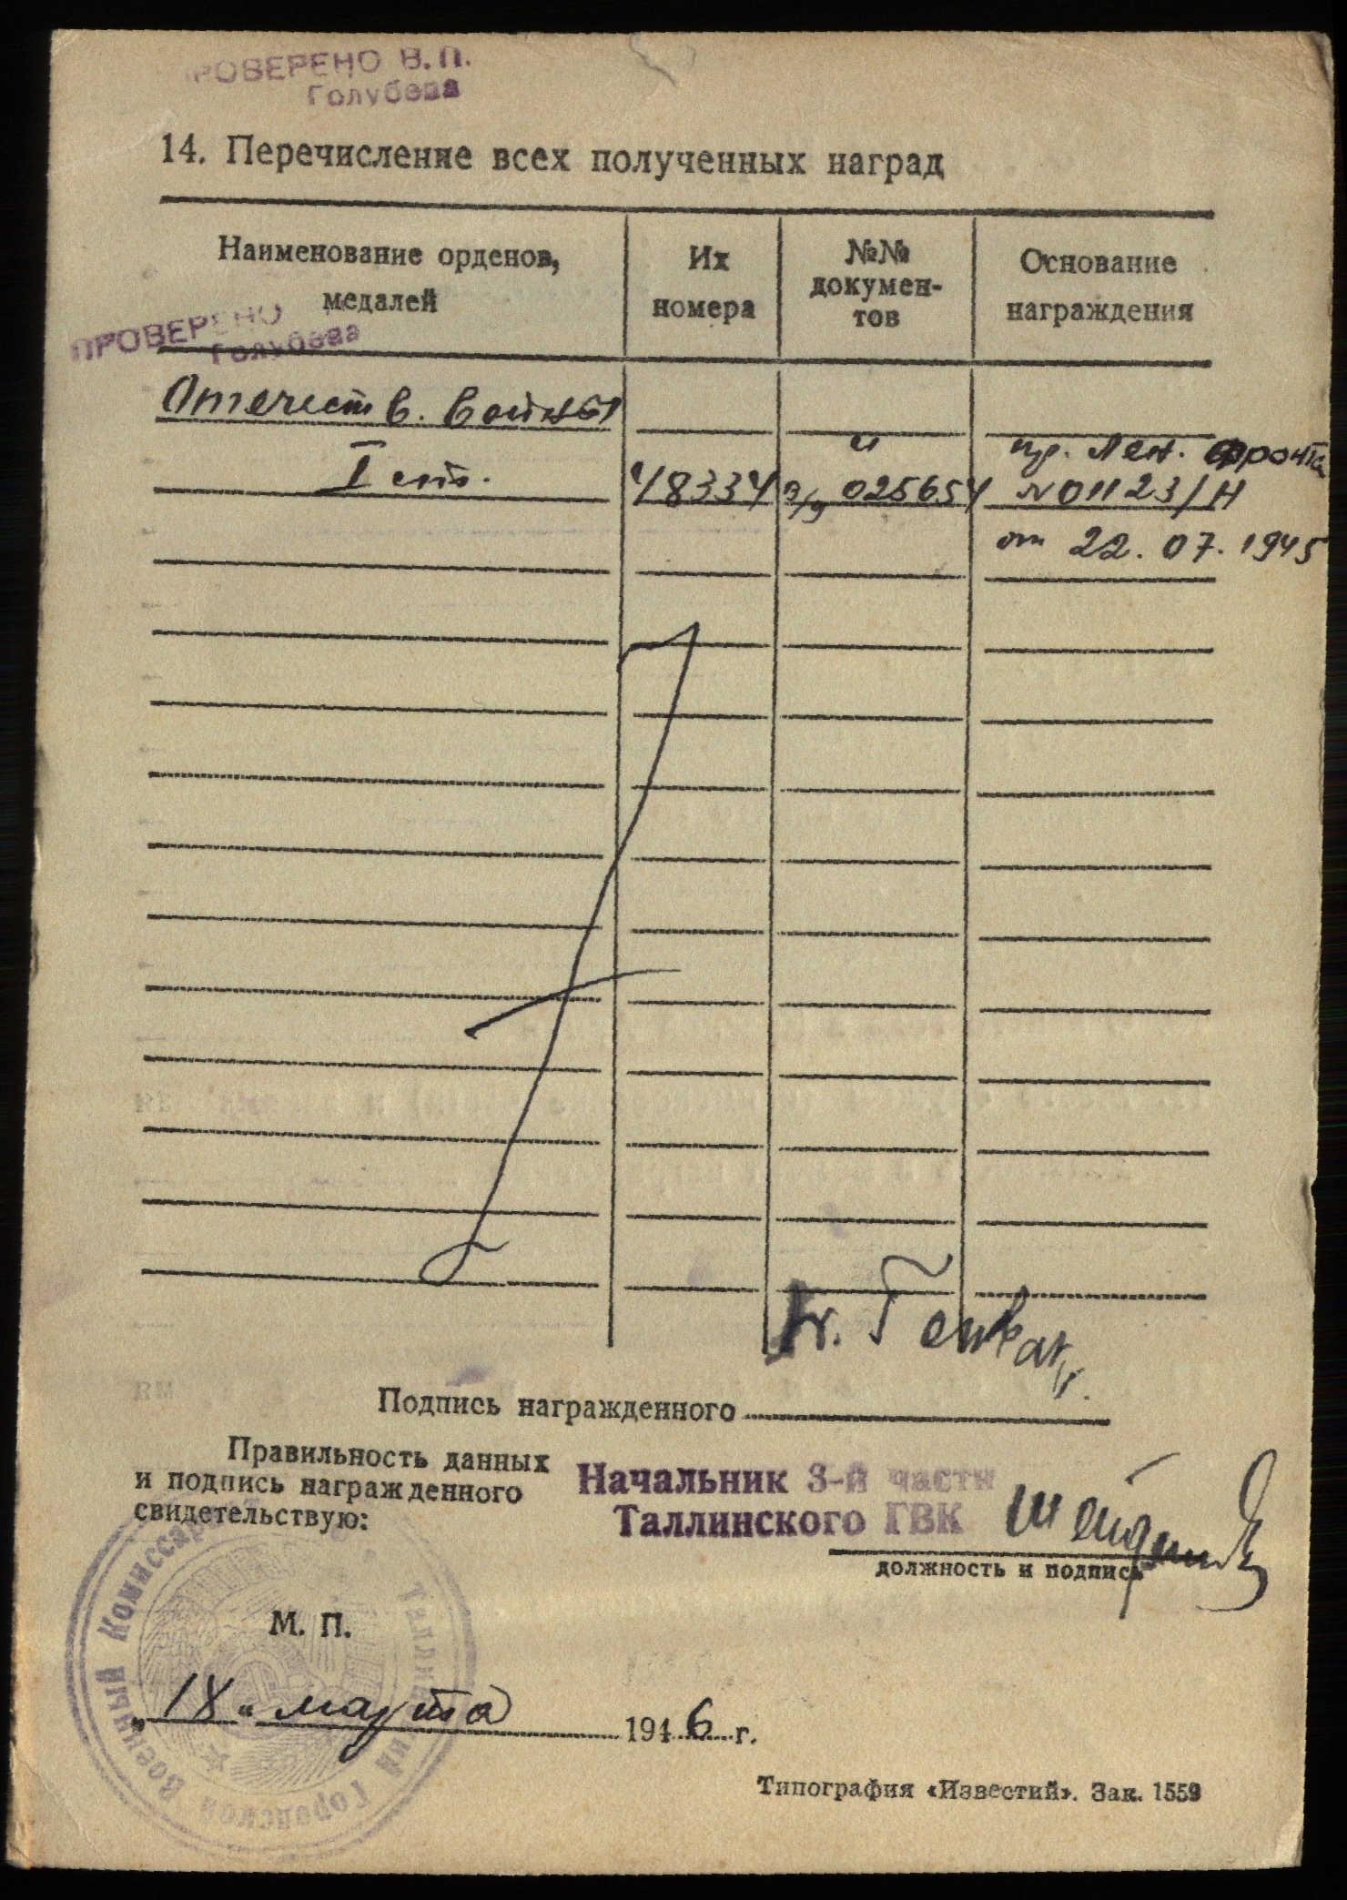 ПРОВЕРЕНО В.П.
Голубева
14. Перечисление всех полученных наград
Наименование орденов, медалей
Их номера
№№ докумен-тов
Основание награждения
ПРОВЕРЕНО
Голубева
Отечеств. войны
I ст. 48334 025654 пр. Лен. фронта
№01123/Н
от 22.07.1945
Подпись награжденного
Правильность данных
и подпись награжденного
свидетельствую:
Начальник 3-й части
Таллинского ГВК
должность и подпись
М. П.
„18" марта 1946 г.
Военный Комиссариат
Таллинский Городской
Типография «Известий». Зак. 1559